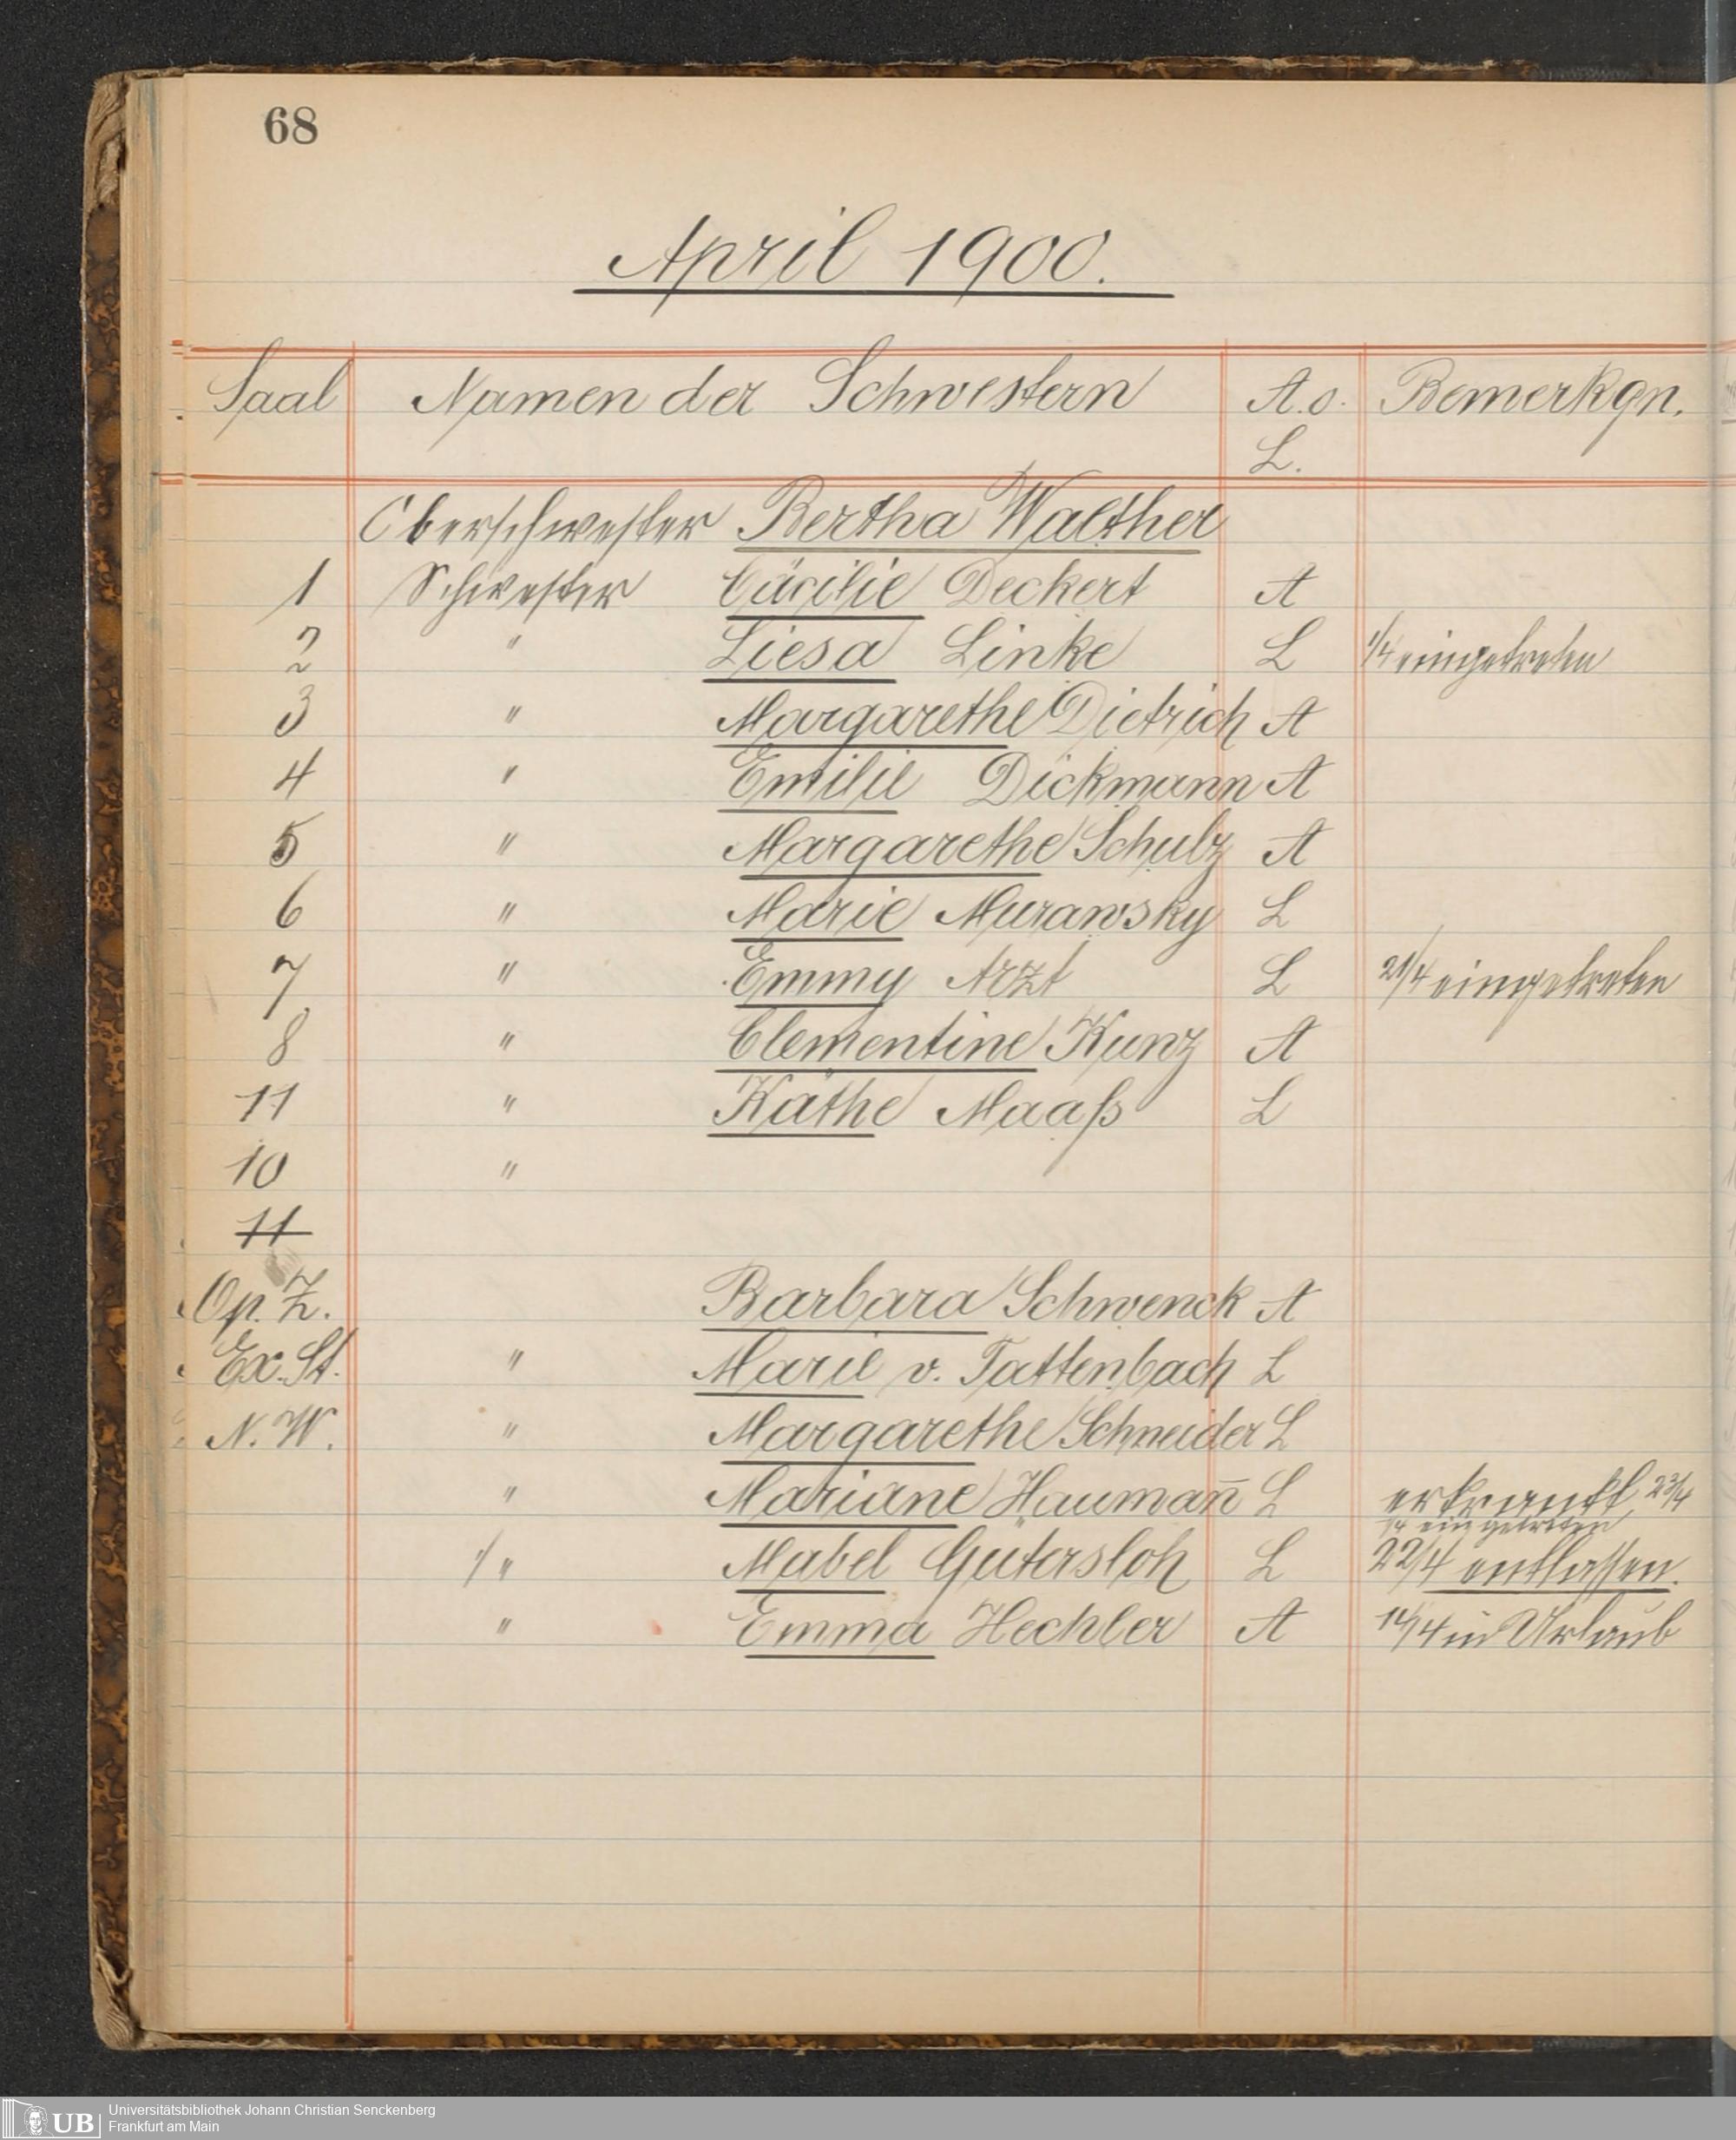 68
April 1900.
Saal Namen der Schwestern A. o. Bemerkgn.
L.
Oberschwester Bertha Walther
1 Schwester Cäcilie Deckert A
2 " Liesa Linke L 1/4 eingetreten
3 " Margarethe Dietrich A
4 " Emilie Dickmann A
5 " Margarethe Schulz A
6 " Marie Murawsky L
7 " Emmy Arzt L 21/4 eingetreten
8 " Clementine Kunz A
11 " Käthe Maaß L
10 "
11
Op. Z. Barbara Schwenck A
Ex. St. " Marie v. Tattenbach L
N. W. " Margarethe Schneider L
" Mariane Hauman̄ L erkrankt 23/4
eingetreten
" Mabel Gütersloh L 22/4 entlassen.
" Emma Hechler A 14/4 in Urlaub
UB Universitätsbibliothek Johann Christian Senckenberg
Frankfurt am Main